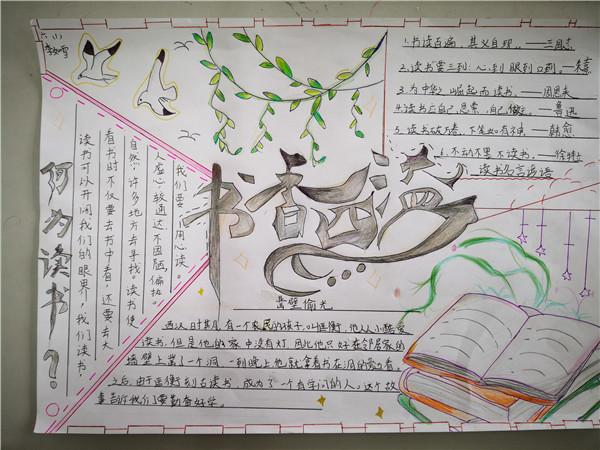 六(1)
李如雪
何为读书？
读书可以开阔我们的眼界，我们读书，
看书时不仅要去书中看，还要去大
自然，许多地方去寻找。读书使
人虚心，较通达，不固陋，偏执。
我们要用心读。
书香四溢
1.书读百遍，其义自现。——三国志
2.读书要三到：心到 眼到 口到。——朱熹
3.为中华之崛起而读书。——周恩来
4.读书在自己思索，自己做主。——鲁迅
5.读书破万卷，下笔如有神。——韩愈
6.不动笔墨不读书。——徐特立
读书名言谚语
凿壁偷光
西汉时期，有一个农民的孩子，叫匡衡，他从小酷爱
读书，但是他的家中没有灯，因此他只好在邻居家的
墙壁上凿了一个洞，一到晚上他就拿着书在洞的旁边看。
之后，由于匡衡刻苦读书，成为了一个有学问的人，这个故
事告诉我们要勤奋好学。